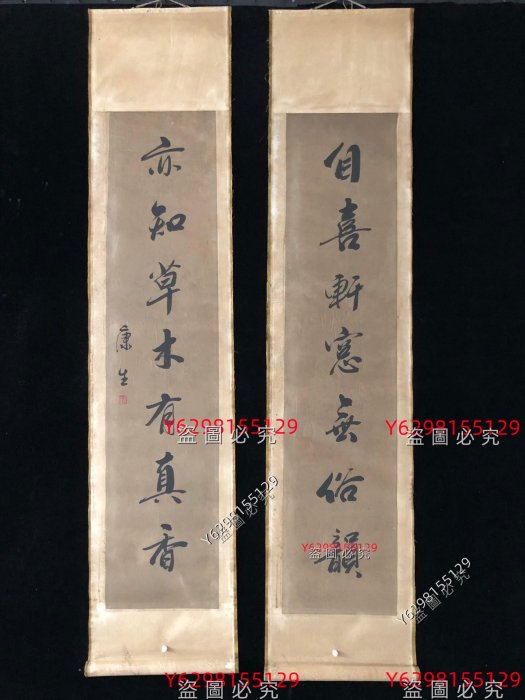 自喜軒窓無俗韻
亦知草木有真香
康生
Y6298155129
盜圖必究
Y6298155129
盜圖必究
Y6298155129
盜圖必究
Y6298155129
盜圖必究
Y6298155129
盜圖必究
Y6298155129
盜圖必究
Y6298155129
盜圖必究